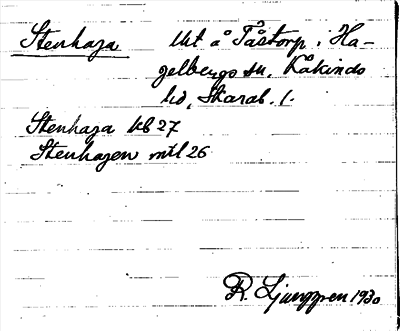 Stenhaga Ut å Tåstorp i Ha-
gelbergs sn. Kåkinds
hd, Skarab. l.
Stenhaga kb 27
Stenhagen mtl 26
R. Ljunggren 1930